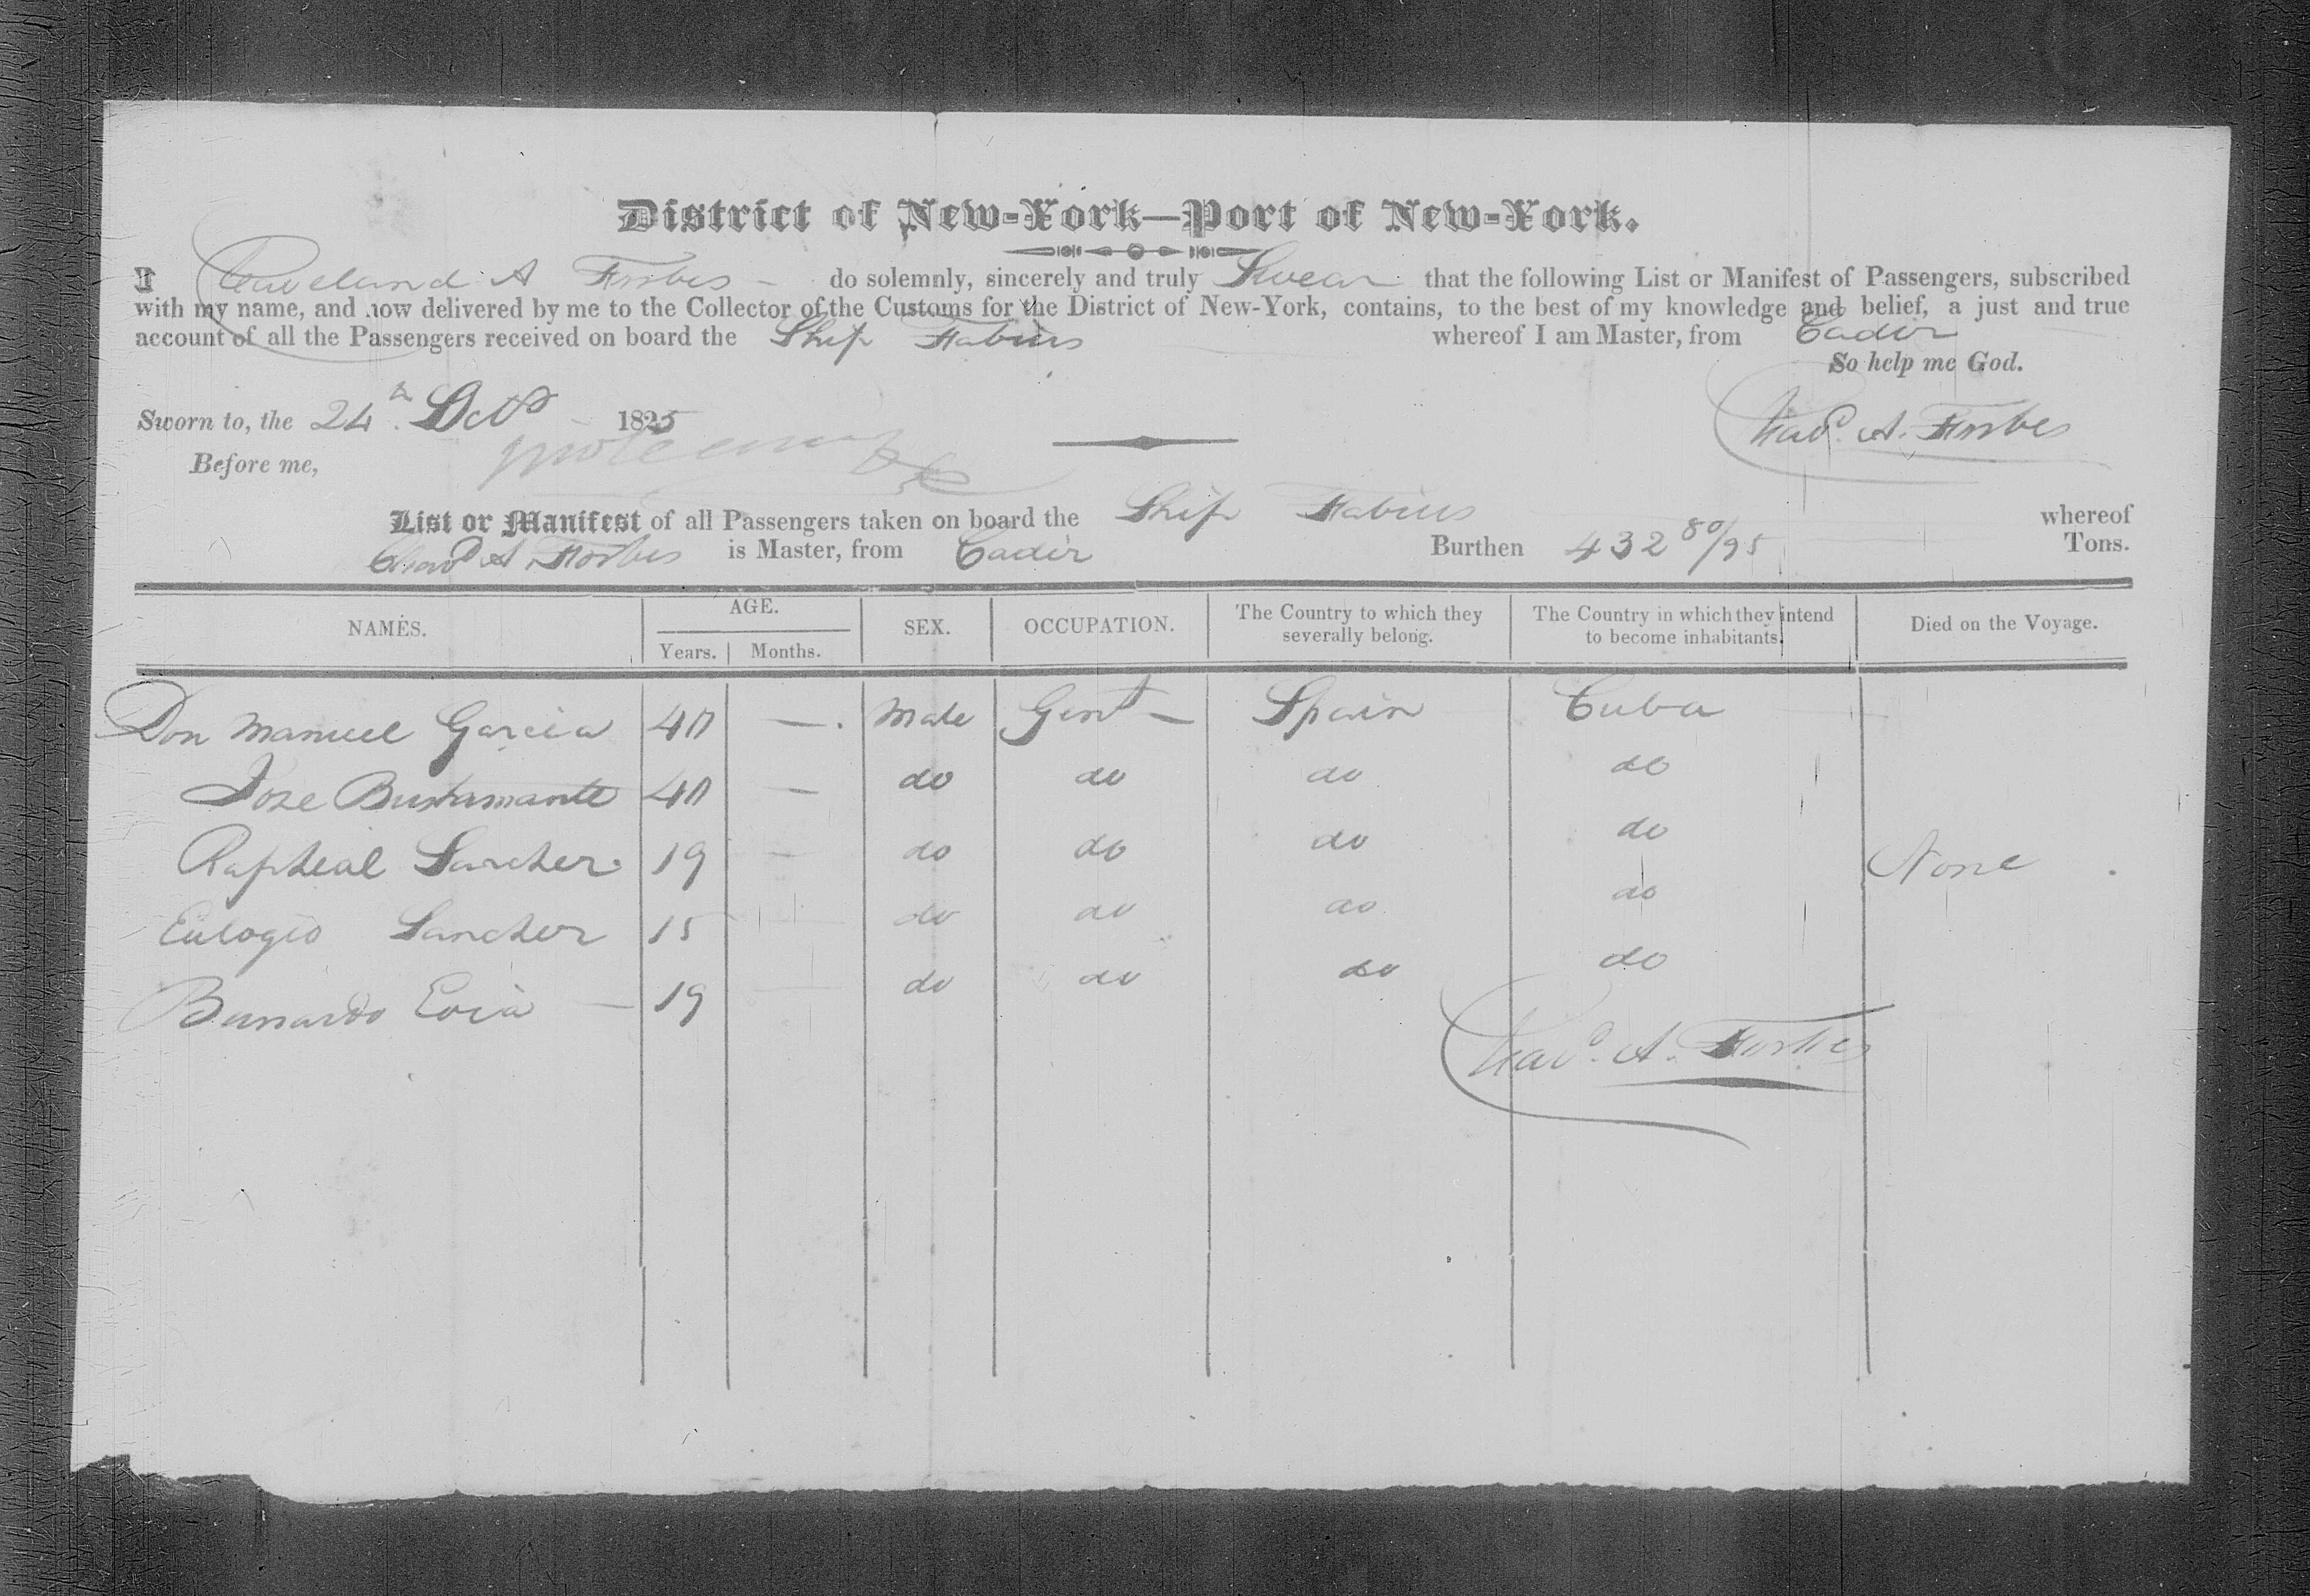 District of New-York—Port of New-York.
I Cleaveland A Forbes do solemnly, sincerely and truly Swear that the following List or Manifest of Passengers, subscribed
with my name, and now delivered by me to the Collector of the Customs for the District of New-York, contains, to the best of my knowledge and belief, a just and true
account of all the Passengers received on board the Ship Fabius whereof I am Master, from Cadiz
So help me God.
Sworn to, the 24th Octo 1825
Cleavd. A. Forbes
Before me,
List or Manifest of all Passengers taken on board the Ship Fabius whereof
Cleavd A. Forbes is Master, from Cadiz Burthen 432 80/95 Tons.
NAMES. AGE. Years. Months. SEX. OCCUPATION. The Country to which they severally belong. The Country in which they intend to become inhabitants. Died on the Voyage.
Don Manuel Garcia 40 — Male Gent — Spain Cuba
Jose Bustamante 40 — do do do do
Rapheal Sanchez 19 — do do do do None
Eulogio Sanchez 15 do do do do
Bernardo 19 do do do do
Cleavd. A. Forbes